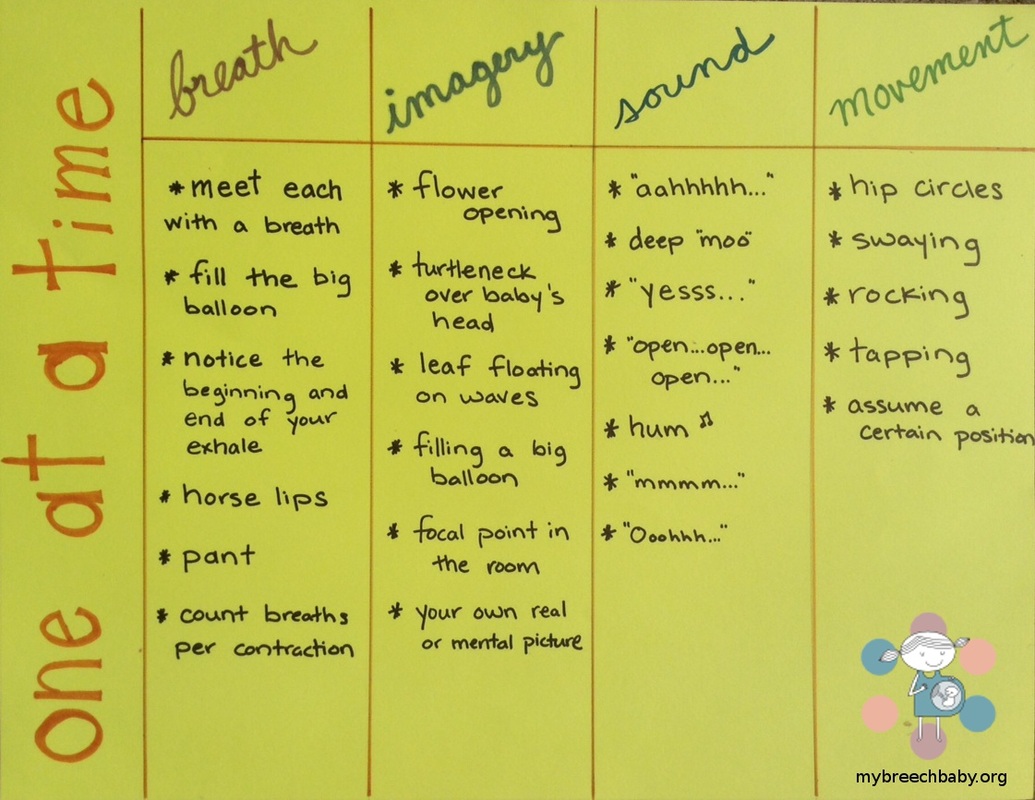 one at a time
breath
* meet each
with a breath
* fill the big
balloon
* notice the
beginning and
end of your
exhale
* horse lips
* pant
* count breaths
per contraction
imagery
* flower
opening
* turtleneck
over baby's
head
* leaf floating
on waves
* filling a big
balloon
* focal point in
the room
* your own real
or mental picture
sound
* "aahhhhh..."
* deep "moo"
* "yesss..."
* "open...open...
open..."
* hum ♫
* "mmmm..."
* "Ooohhh..."
movement
* hip circles
* swaying
* rocking
* tapping
* assume a
certain position
mybreechbaby.org